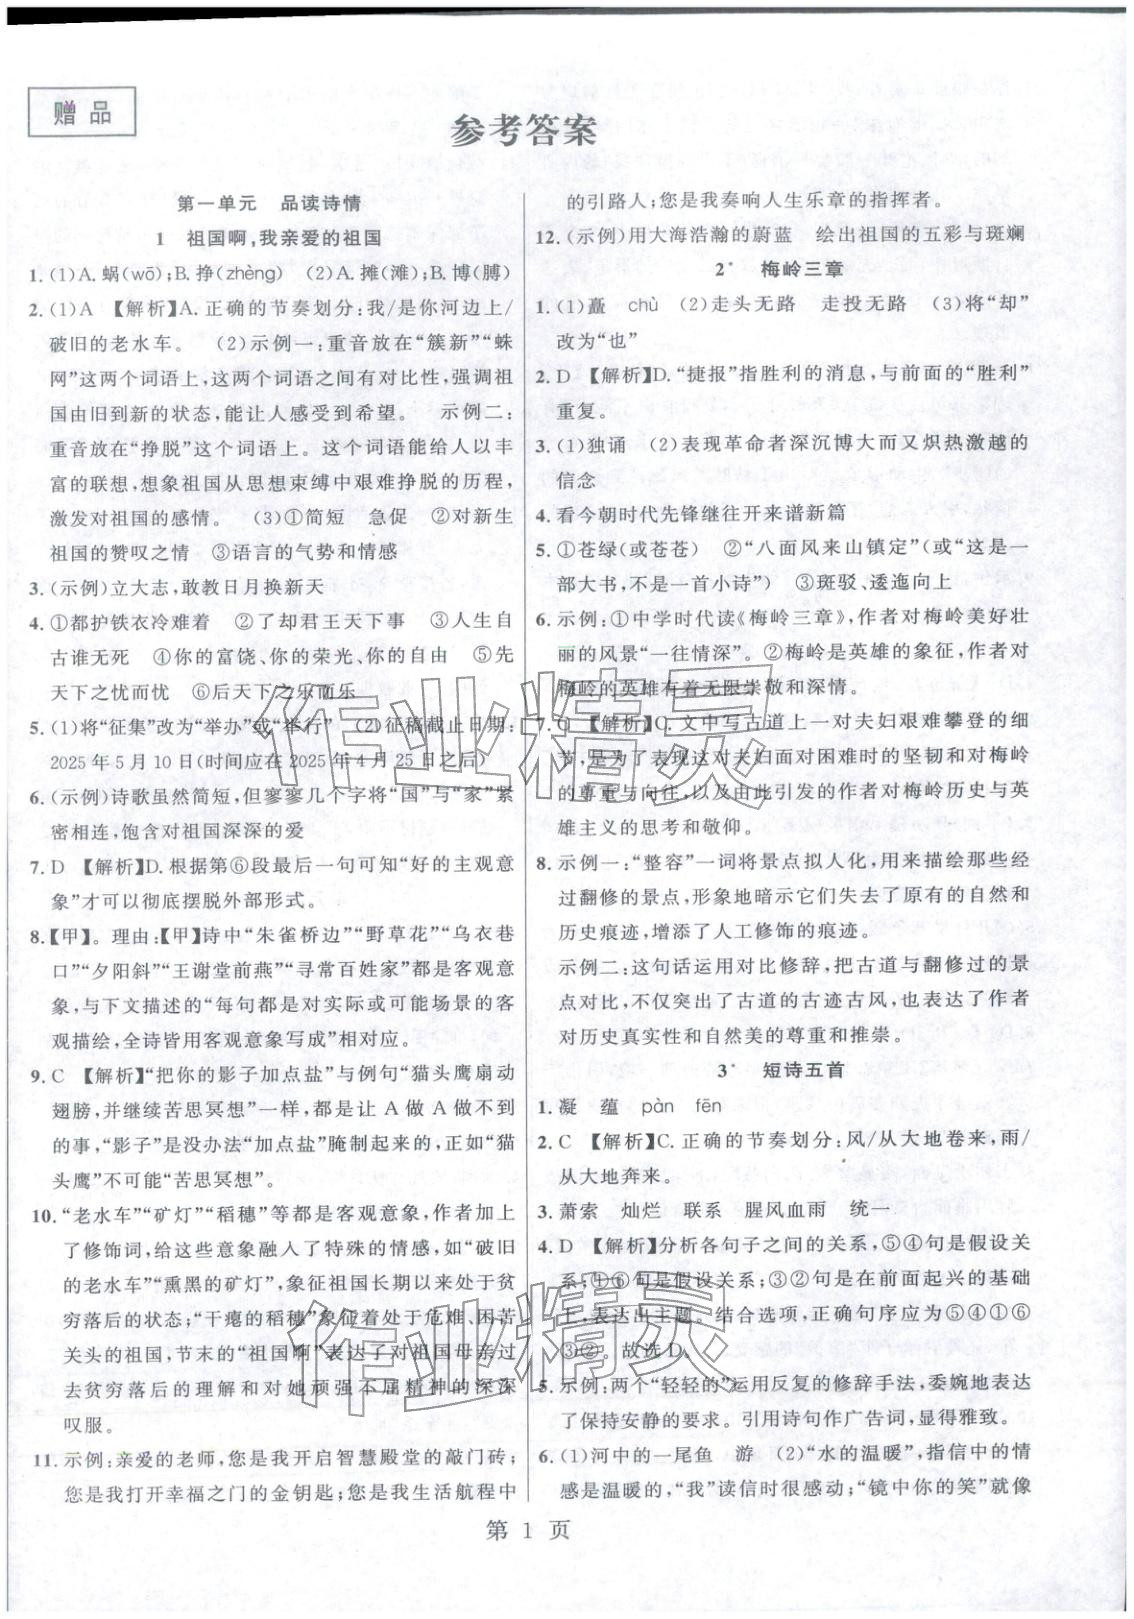 赠 品
参考答案
第一单元　品读诗情
1　祖国啊,我亲爱的祖国
1. (1)A. 蜗(wō);B. 挣(zhèng)　(2)A. 摊(滩);B. 博(膊)
2. (1)A　【解析】A. 正确的节奏划分:我/是你河边上/
破旧的老水车。　(2)示例一:重音放在“簇新”“蛛
网”这两个词语上,这两个词语之间有对比性,强调祖
国由旧到新的状态,能让人感受到希望。　示例二:
重音放在“挣脱”这个词语上。这个词语能给人以丰
富的联想,想象祖国从思想束缚中艰难挣脱的历程,
激发对祖国的感情。　(3)①简短　急促　②对新生
祖国的赞叹之情　③语言的气势和情感
3. (示例)立大志,敢教日月换新天
4. ①都护铁衣冷难着　②了却君王天下事　③人生自
古谁无死　④你的富饶、你的荣光、你的自由　⑤先
天下之忧而忧　⑥后天下之乐而乐
5. (1)将“征集”改为“举办”或“举行”　(2)征稿截止日期:
2025 年 5 月 10 日(时间应在 2025 年 4 月 25 日之后)
6. (示例)诗歌虽然简短,但寥寥几个字将“国”与“家”紧
密相连,饱含对祖国深深的爱
7. D　【解析】D. 根据第⑥段最后一句可知“好的主观意
象”才可以彻底摆脱外部形式。
8.【甲】。理由:【甲】诗中“朱雀桥边”“野草花”“乌衣巷
口”“夕阳斜”“王谢堂前燕”“寻常百姓家”都是客观意
象,与下文描述的“每句都是对实际或可能场景的客
观描绘,全诗皆用客观意象写成”相对应。
9. C　【解析】“把你的影子加点盐”与例句“猫头鹰扇动
翅膀,并继续苦思冥想”一样,都是让 A 做 A 做不到
的事,“影子”是没办法“加点盐”腌制起来的,正如“猫
头鹰”不可能“苦思冥想”。
10. “老水车”“矿灯”“稻穗”等都是客观意象,作者加上
了修饰词,给这些意象融入了特殊的情感,如“破旧
的老水车”“熏黑的矿灯”,象征祖国长期以来处于贫
穷落后的状态;“干瘪的稻穗”象征着处于危难、困苦
关头的祖国,节末的“祖国啊”表达了对祖国母亲过
去贫穷落后的理解和对她顽强不屈精神的深深
叹服。
11. 示例:亲爱的老师,您是我开启智慧殿堂的敲门砖;
您是我打开幸福之门的金钥匙;您是我生活航程中
的引路人;您是我奏响人生乐章的指挥者。
12. (示例)用大海浩瀚的蔚蓝　绘出祖国的五彩与斑斓
2*　梅岭三章
1. (1)矗　chù　(2)走头无路　走投无路　(3)将“却”
改为“也”
2. D　【解析】D. “捷报”指胜利的消息,与前面的“胜利”
重复。
3. (1)独诵　(2)表现革命者深沉博大而又炽热激越的
信念
4. 看今朝时代先锋继往开来谱新篇
5. ①苍绿(或苍苍)　②“八面风来山镇定”(或“这是一
部大书,不是一首小诗”)　③斑驳、逶迤向上
6. 示例:①中学时代读《梅岭三章》,作者对梅岭美好壮
丽的风景“一往情深”。②梅岭是英雄的象征,作者对
梅岭的英雄有着无限崇敬和深情。
7. C　【解析】C. 文中写古道上一对夫妇艰难攀登的细
节,是为了表现这对夫妇面对困难时的坚韧和对梅岭
的尊重与向往,以及由此引发的作者对梅岭历史与英
雄主义的思考和敬仰。
8. 示例一:“整容”一词将景点拟人化,用来描绘那些经
过翻修的景点,形象地暗示它们失去了原有的自然和
历史痕迹,增添了人工修饰的痕迹。
示例二:这句话运用对比修辞,把古道与翻修过的景
点对比,不仅突出了古道的古迹古风,也表达了作者
对历史真实性和自然美的尊重和推崇。
3*　短诗五首
1. 凝　蕴　pàn　fēn
2. C　【解析】C. 正确的节奏划分:风/从大地卷来,雨/
从大地奔来。
3. 萧索　灿烂　联系　腥风血雨　统一
4. D　【解析】分析各句子之间的关系,⑤④句是假设关
系;①⑥句是假设关系;③②句是在前面起兴的基础
上,表达出主题。结合选项,正确句序应为⑤④①⑥
③②。故选 D。
5. 示例:两个“轻轻的”运用反复的修辞手法,委婉地表达
了保持安静的要求。引用诗句作广告词,显得雅致。
6. (1)河中的一尾鱼　游　(2)“水的温暖”,指信中的情
感是温暖的,“我”读信时很感动;“镜中你的笑”就像
第 1 页
作业精灵
作业精灵